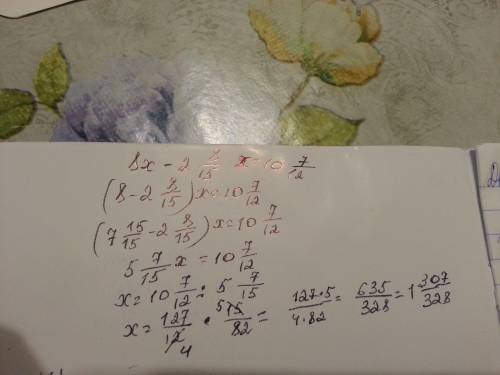 8x - 2 8/15 x = 10 7/12
(8 - 2 8/15)x = 10 7/12
(7 15/15 - 2 8/15)x = 10 7/12
5 7/15 x = 10 7/12
x = 10 7/12 : 5 7/15
x = 127/12 4 · 5 15/82 = 127·5/4·82 = 635/328 = 1 307/328